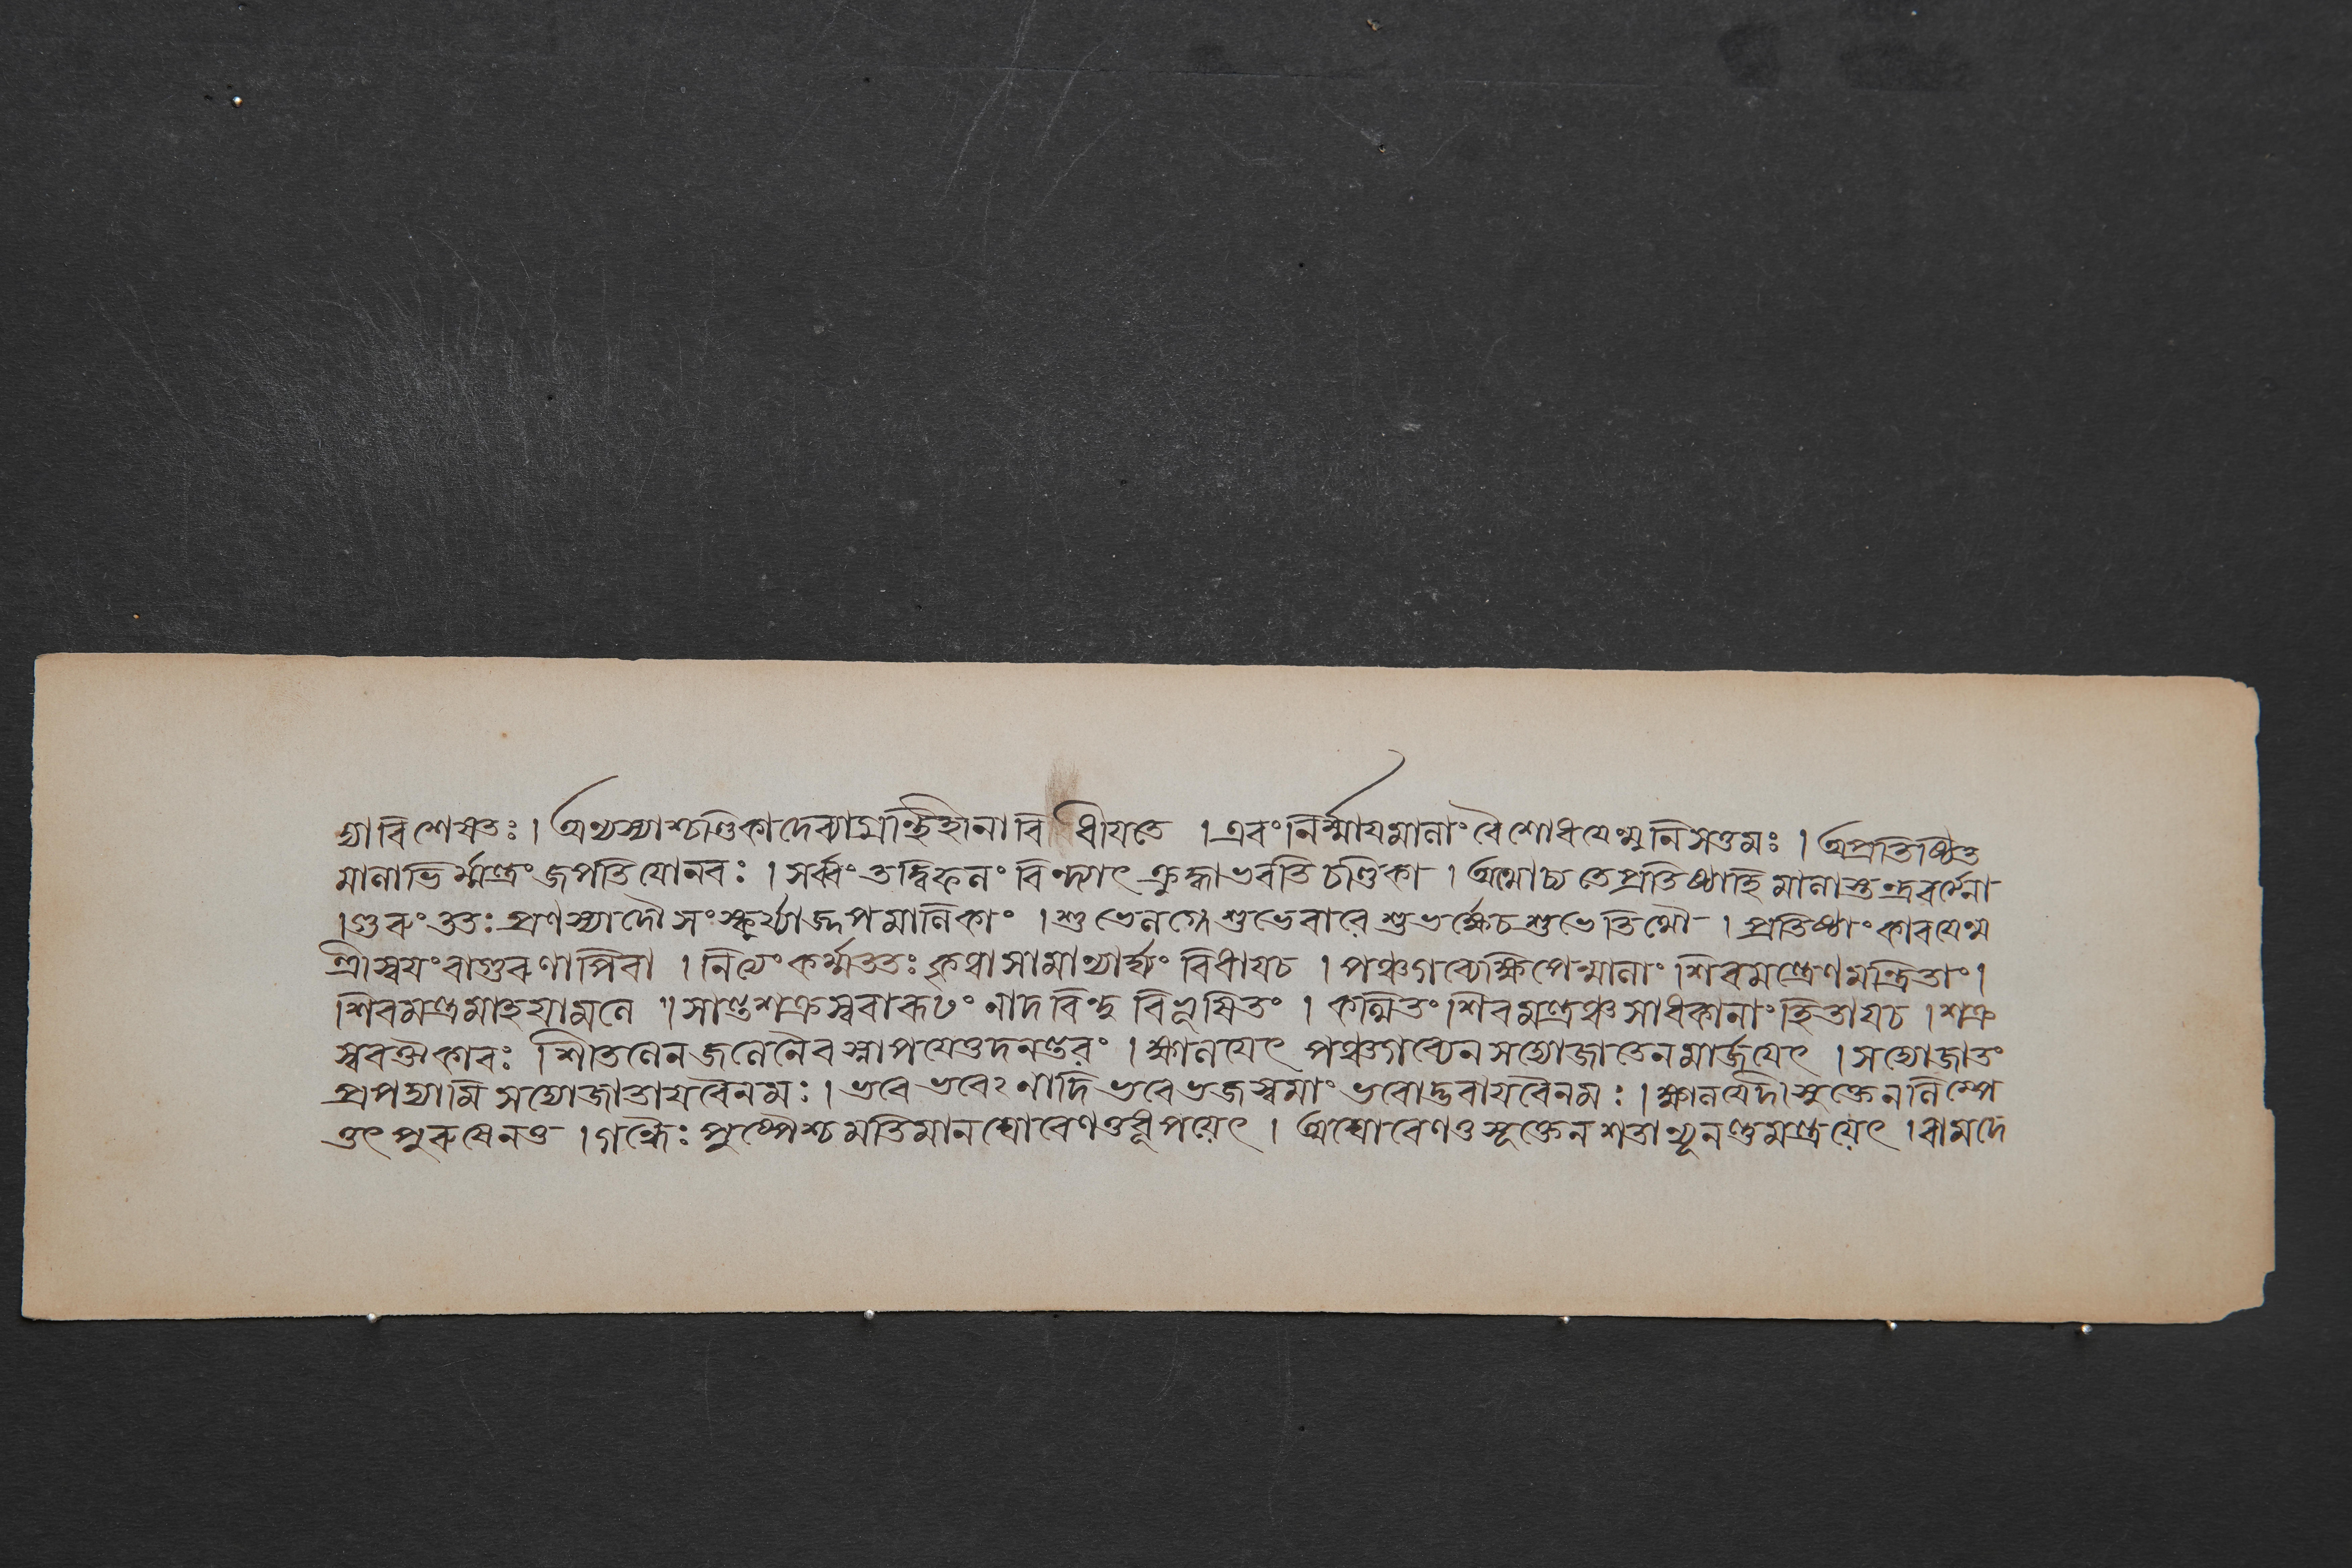 দ্যাবিশেষতঃ । অথাস্যাশ্চণ্ডিকাদেব্যামান্ত্রিহানাবি ধীযতে । এবংনির্ম্মাযমানাংবৈশোধযেন্মুনিসত্তমঃ । অপ্রতিষ্ঠিত
মানাভির্ম্মন্ত্রংজপতিযোনরঃ । সর্ব্বংতদ্বিফলংবিন্দ্যাৎক্রুদ্ধাভবতিচণ্ডিকা । অথোচ্যতেপ্রতিষ্ঠাহিমানাস্তন্দ্রবর্ত্মেনা
। গুরুংততঃপ্রণম্যাদৌসংস্কুর্য্যাজ্জপমানিকাং । শুভেলগ্নেশুভেবারেশুভর্ক্ষেচশুভেতিথৌ । প্রতিষ্ঠাংকারযেন্ম
ন্ত্রীস্বযংবাগুরুণাপিবা । নিত্যংকর্ম্মততঃকৃত্বাসামান্যার্ঘ্যং বিধাযচ । পঞ্চগব্যেক্ষিপেন্মানাংশিবমন্ত্রেণমন্ত্রিতাং ।
শিবমন্ত্রমাহযামলে ॥ সান্তশক্রস্বরারূঢংনাদবিন্দুবিভূষিতং । কল্পিতংশিবমন্ত্রঞ্চসাধকানাংহিতাযচ । শক্র
স্বরঔকারঃ শীতলেনজলেনৈবস্নাপযেত্তদনন্তরং । ক্ষালযেৎ পঞ্চগব্যেনসদ্যোজাতেনমার্জযেৎ । সদ্যোজাতং
প্রপদ্যামিসদ্যোজাতাযবৈনমঃ । ভবেভবেঽনাদিভবেভজস্বমাংভবোদ্ভবাযবৈনমঃ । ক্ষালযেদিসুক্তেননিম্পে
ত্তৎপুরুষেনত । গন্ধৈঃপুষ্পৈশ্চমতিমানঘোরেণতুধূপয়েৎ । অঘোরেণতুসূক্তেনশতান্যূনন্তুমন্ত্রয়েৎ । বামদে